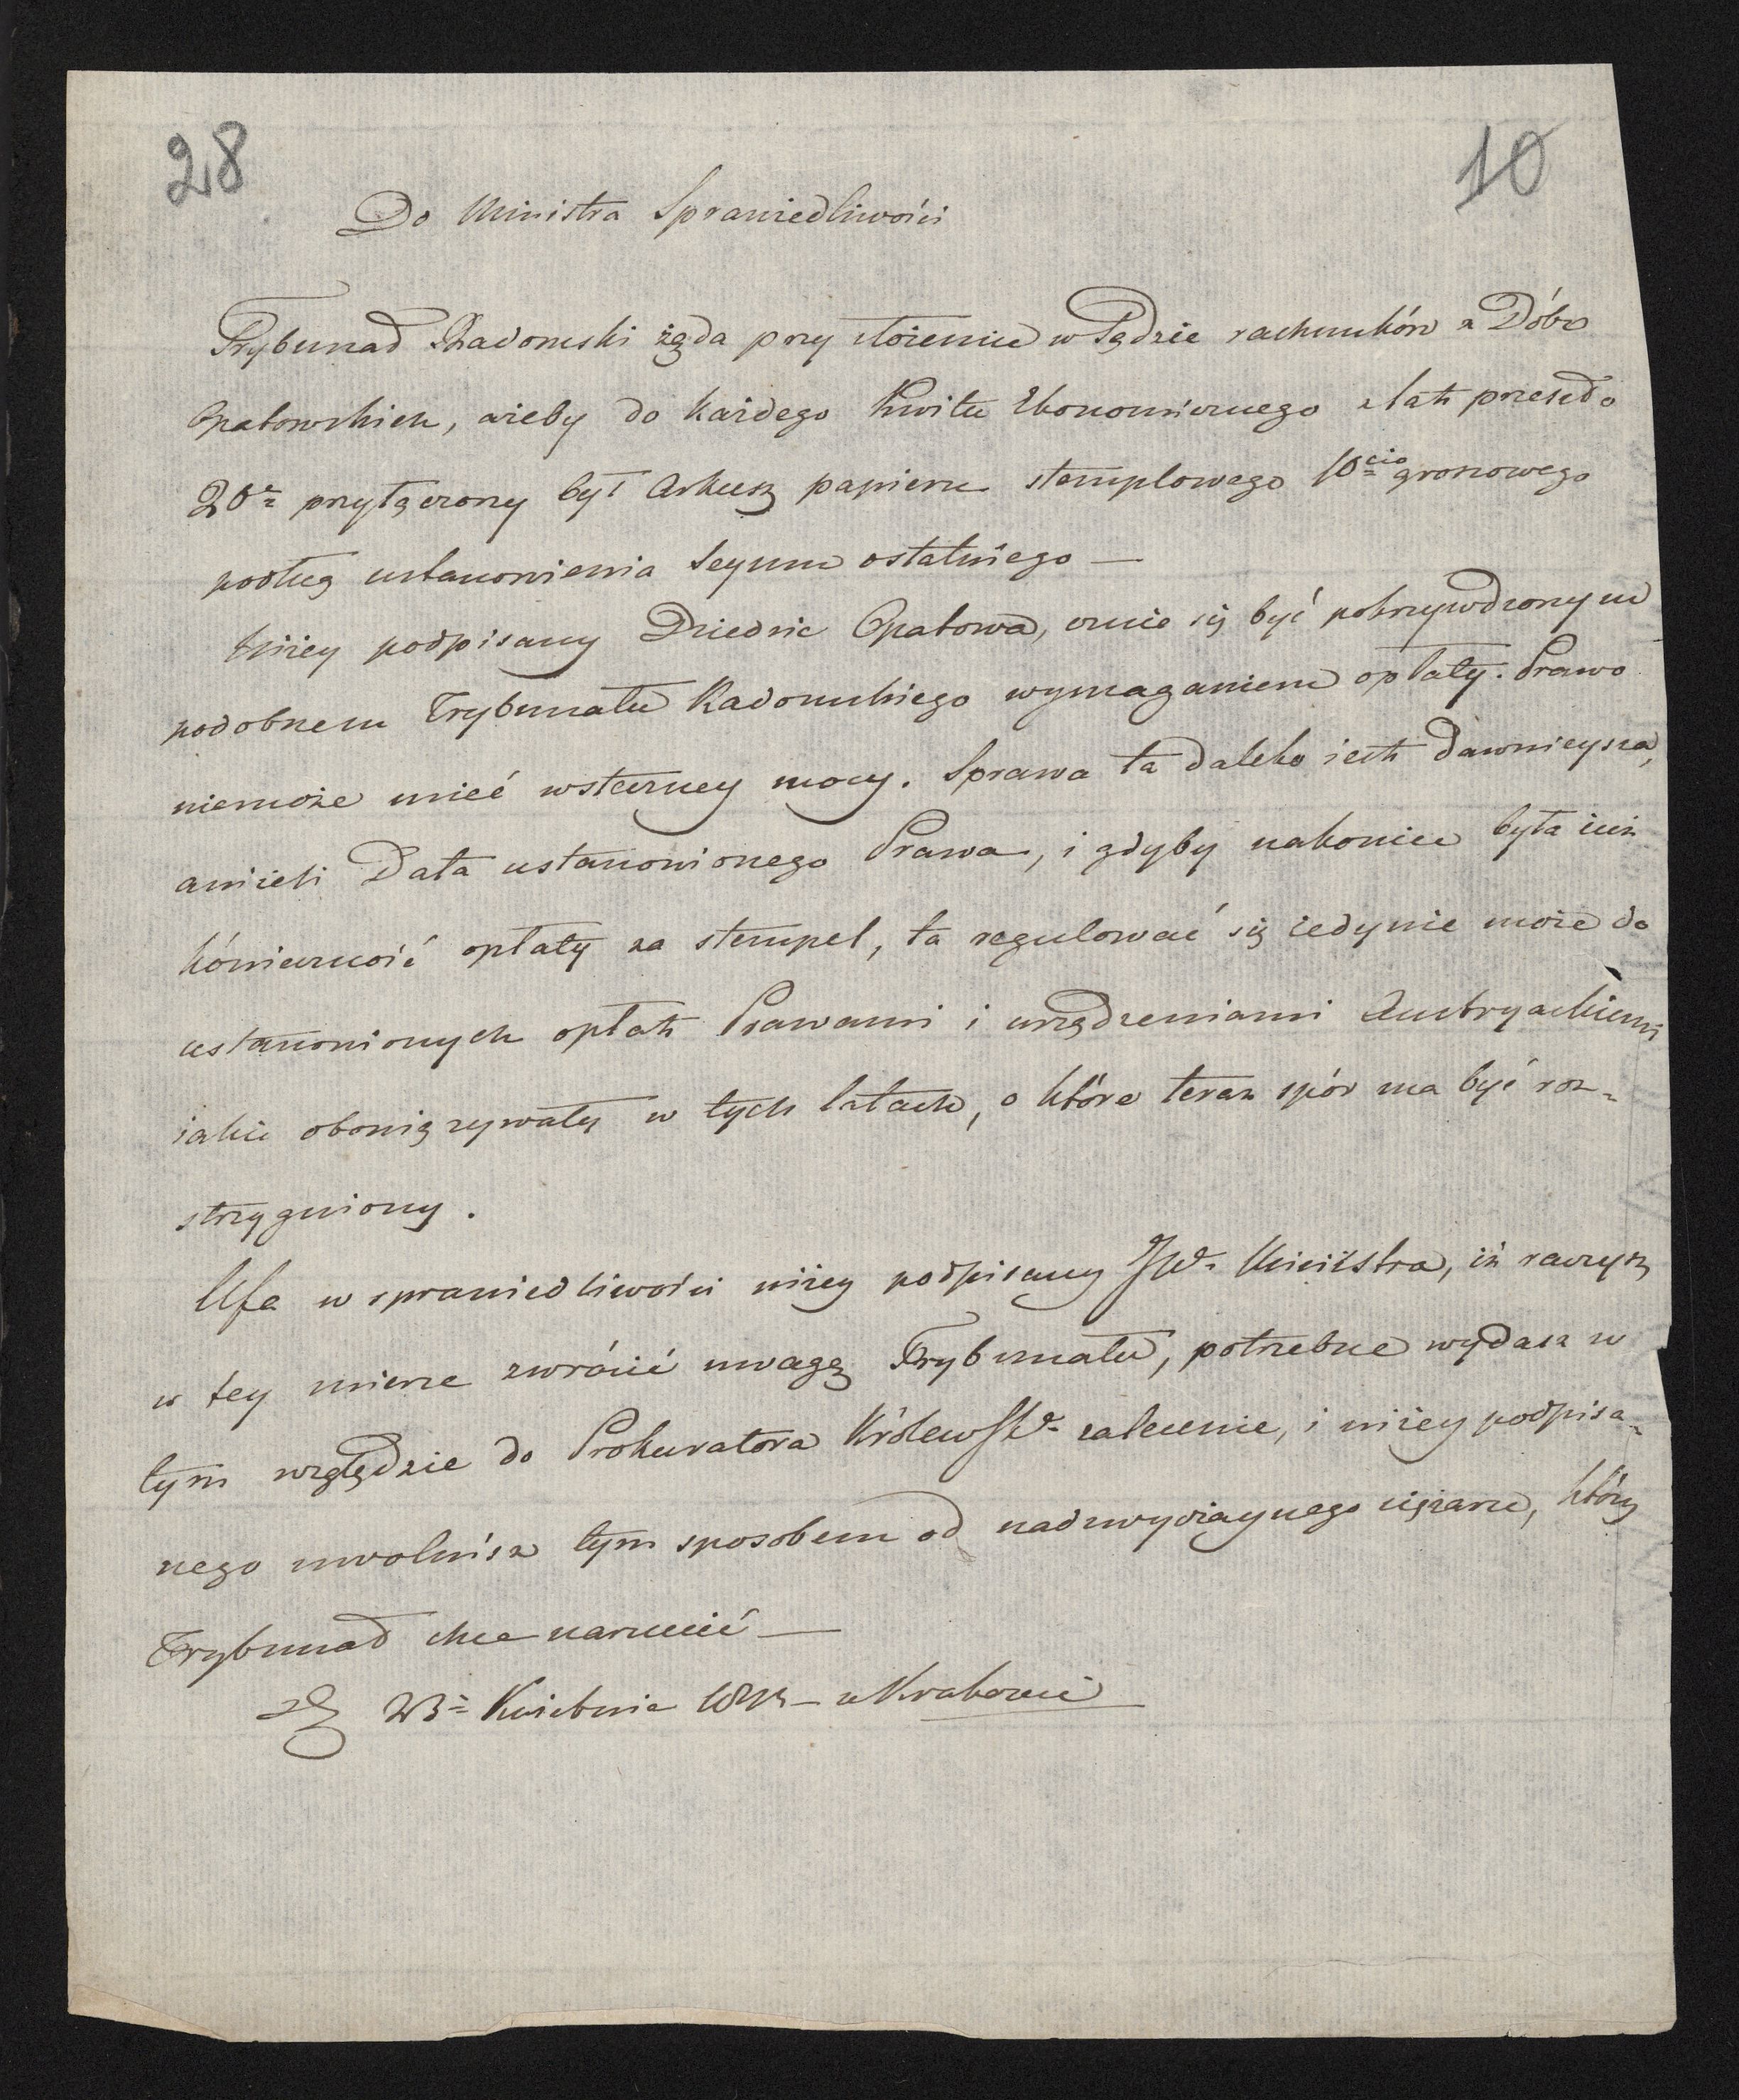 28
10
Do Ministra Sprawiedliwości
Trybunał Radomski żąda przy złożeniu w Sądzie rachunków z Dóbr
Opatowskich, ażeby do każdego Kwitu Ekonomicznego z lat przeszło
20u przyłączony był Arkusz papieru stemplowego 10cio groszowego
podług ustanowienia Seymu ostatniego —
Niżey podpisany Dziedzic Opatowa, czuie się być pokrzywdzonym
podobnem Trybunału Radomskiego wymaganiem opłaty. Prawo
niemoże mieć wsteczney mocy. Sprawa ta daleko iest dawnieysza,
aniżeli Data ustanowionego Prawa, i gdyby nakoniec była iuż
kónieczność opłaty za stempel, ta regulować się iedynie może do
ustanowionych opłat Prawami i urządzeniami Austryackiemi
iakie obowięzywały w tych latach, o które teraz spór ma być roz-
strzygniony.
Ufa w sprawiedliwości niżey podpisany JW. Ministra, iż raczysz
w tey mierze zwrócić uwagę Trybunału, potrzebne wydasz w
tym względzie do Prokuratora Królewsk. zalecenie, i niżey podpisa-
nego uwolnisz tym sposobem od nadzwyczaynego ciężaru, który
Trybunał chce narzucić —
23 Kwietnia — z Krakowa